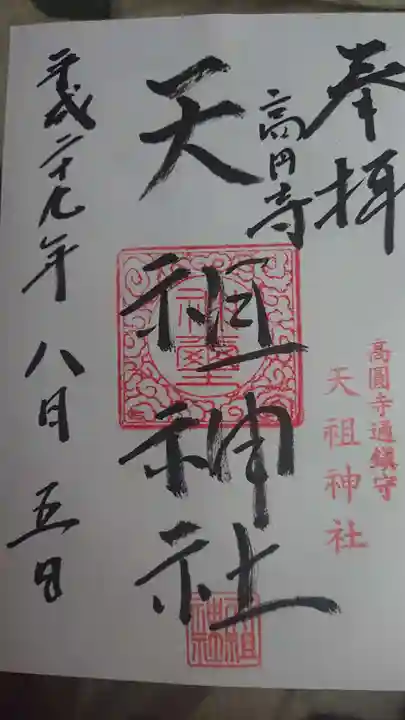 奉拝
高円寺
高圓寺通鎮守
天祖神社
天祖神社
平成二十九年八月五日